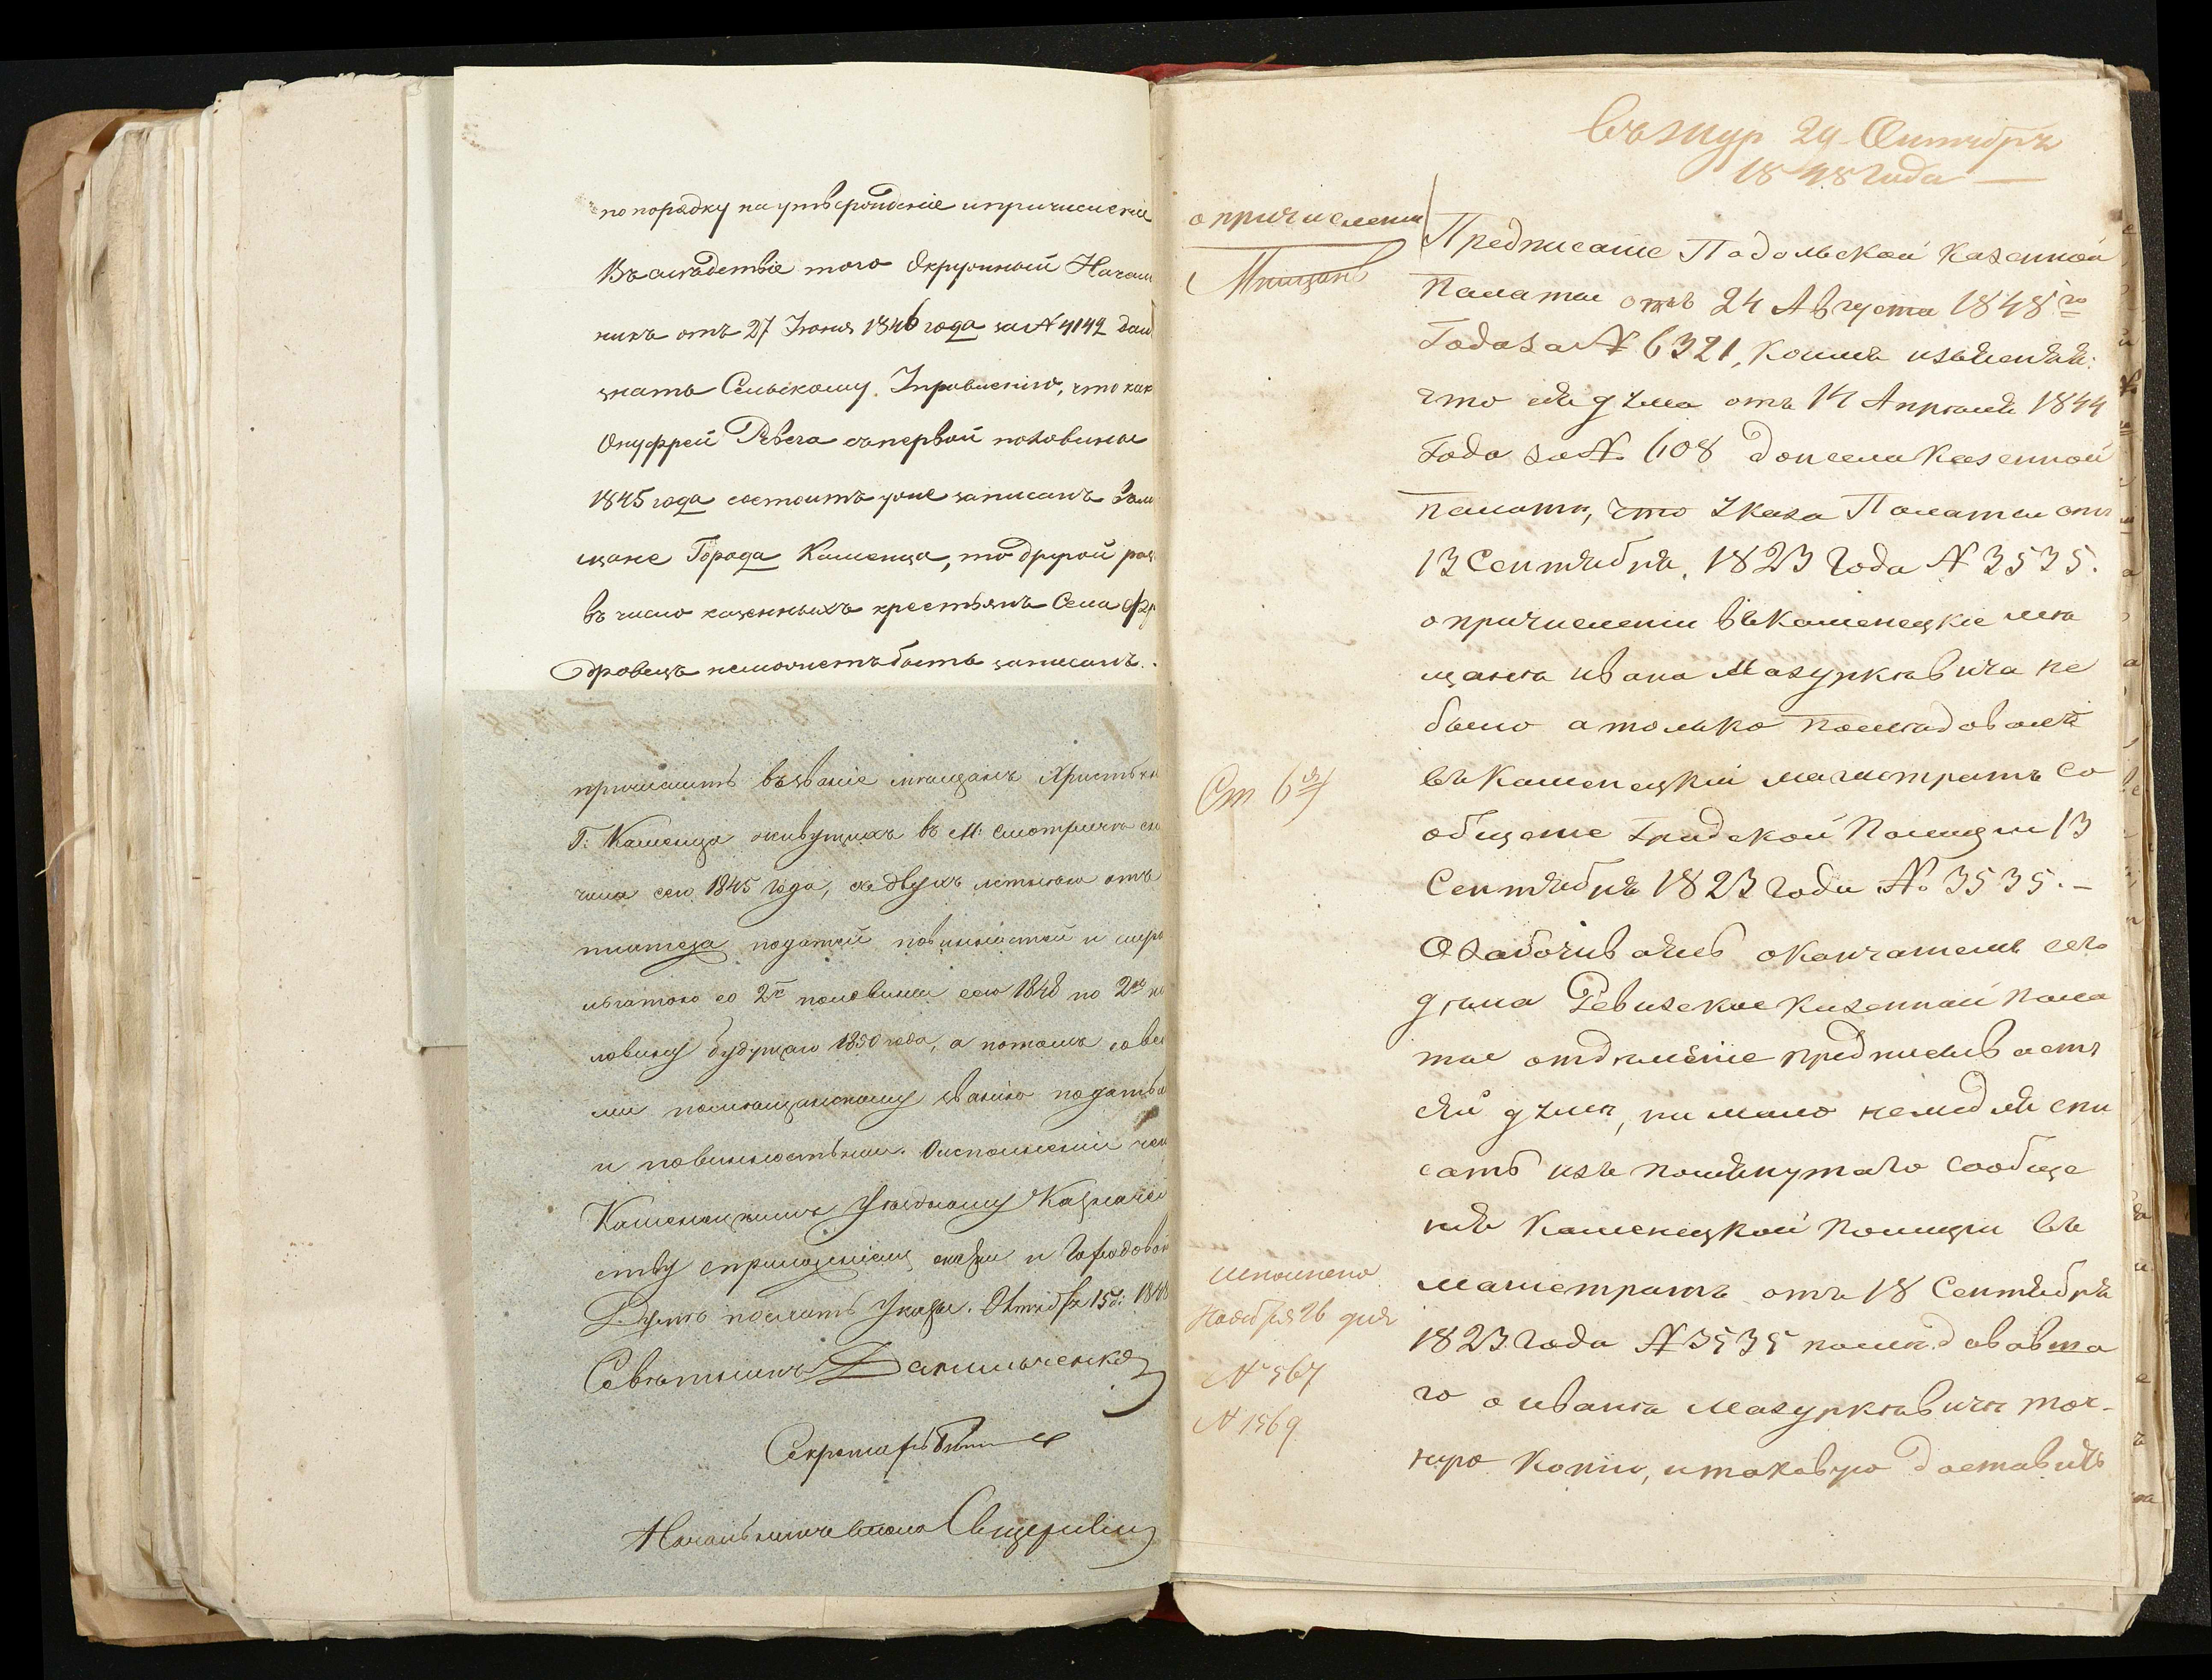 по порядку на утверждение и причисление
Въ следствіе того Окружный Началь
никъ отъ 27 Іюня 1846 года за № 4142 далъ
знать Сельскому Управленію, что какъ
Онуфрей Ревега съ первой половины
1845 года состоитъ уже записанъ въ мѣ
щане Города Каменца, то другой разъ
въ число казенныхъ крестьянъ Села
неможетъ быть записанъ.
причислить въ званіе мѣщанъ
Г: Каменца живущихъ въ М: Смотричѣ
сего 1845 года, съ двухъ летнею отъ
платежа податей повинностей и
льготою со 2й половины сего 1848 по 2ю по
ловину будущаго 1850 года, а потомъ со все
ми помѣщанскому званію податьми
и повинностьми. О исполненіи чего
Каменецкимъ Уездному Казначей
ству с приложеніемъ сказки и Городовой
Думѣ послать Указы. Октября 15 д: 1848
Советникъ Данильченко
Секретарь
Начальникъ стола
Въ жур 29 Октября
1848 года
о причислении
Мѣщанъ
Предписаніе Подольской Казенной
Палаты отъ 24 Августа 1848го
Года за № 6321, коимъ изъясняя:
что сія дума отъ 14 Апреля 1844
Года за №. 608 донесла Казенной
Палаты, что Указа Палаты отъ
13 Сентября, 1823 Года № 3535.
о причислении въ Каменецкіе мѣ
щане Ивана Мазуркѣвича не
было а только последовалъ
въ Каменецкій магистратъ со
Ст 6я
общеніе Градской Полиции 13
Сентября 1823 года № 3535.-
Озабочиваясь окончаниемъ сего
дѣла Ревизское Казенной Пала
ты отдѣленіе предписываетъ
сей думѣ, ни мало немедля спи
сать изъ помянутаго сообще
нія Каменецкой Полиции въ
магистратъ отъ 18 Сентября
1823 года № 3535 последовавша
го о Иване Мазуркѣвичѣ точ-
ную копію, и таковую доставить
Исполнено
Ноября 26 дня
№ 1567
№ 1569